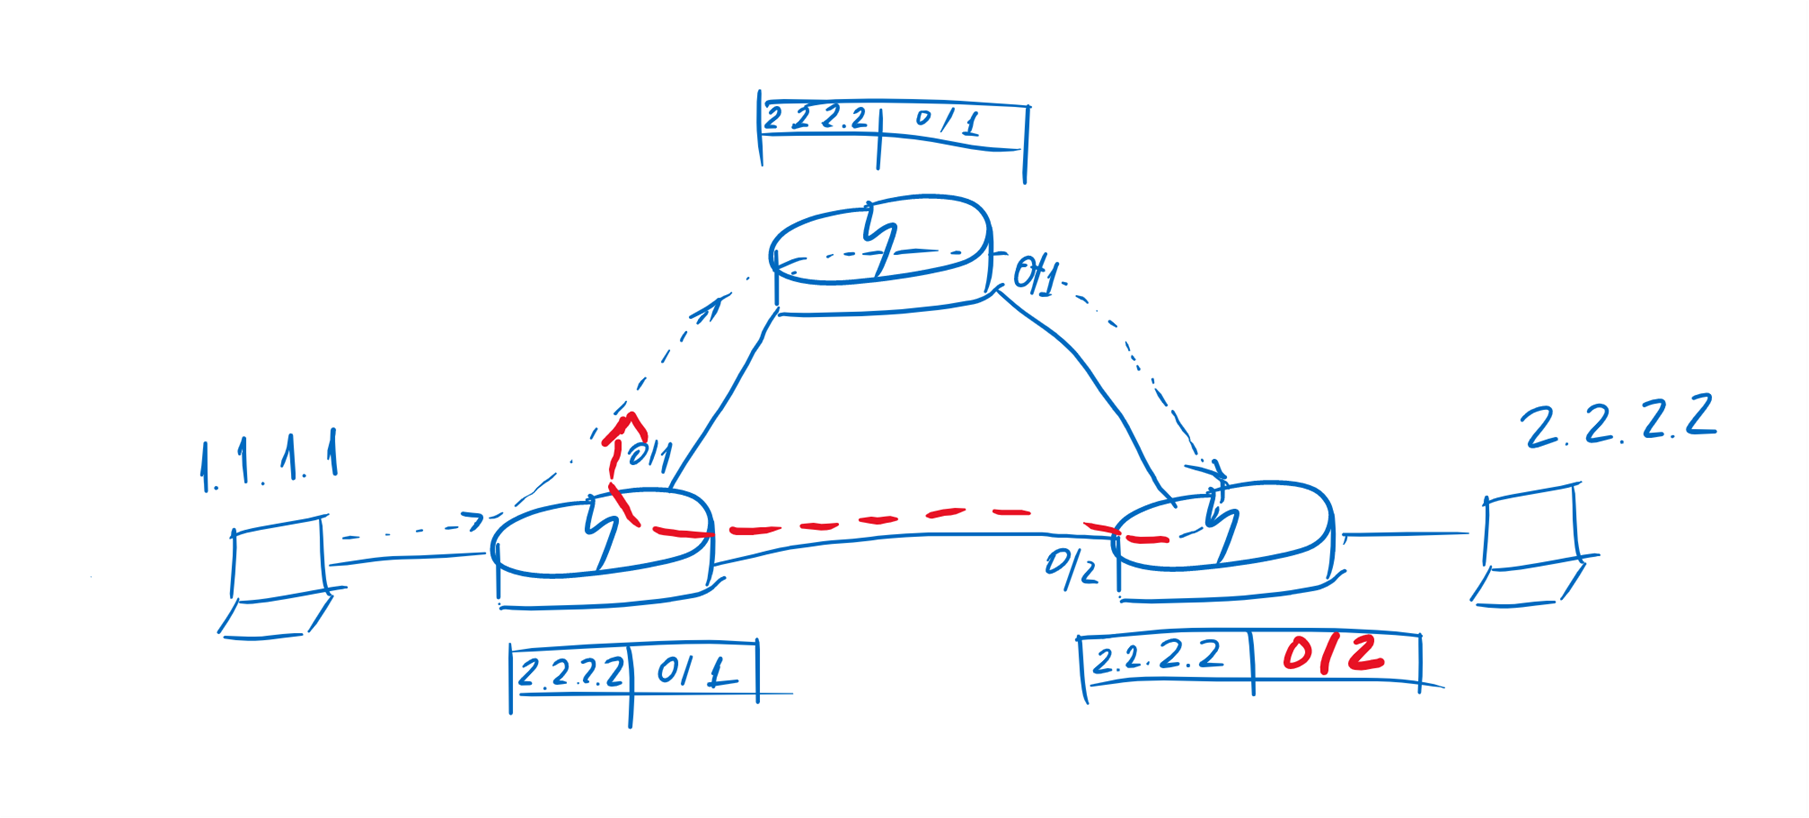 2 2 2.2 0/1
0/1
1.1.1.1
0/1
2.2.2.2
0/2
2.2.2.2 0/1
2.2.2.2 0/2